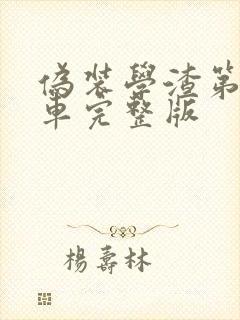 偽裝學渣第
車完整版
楊壽林